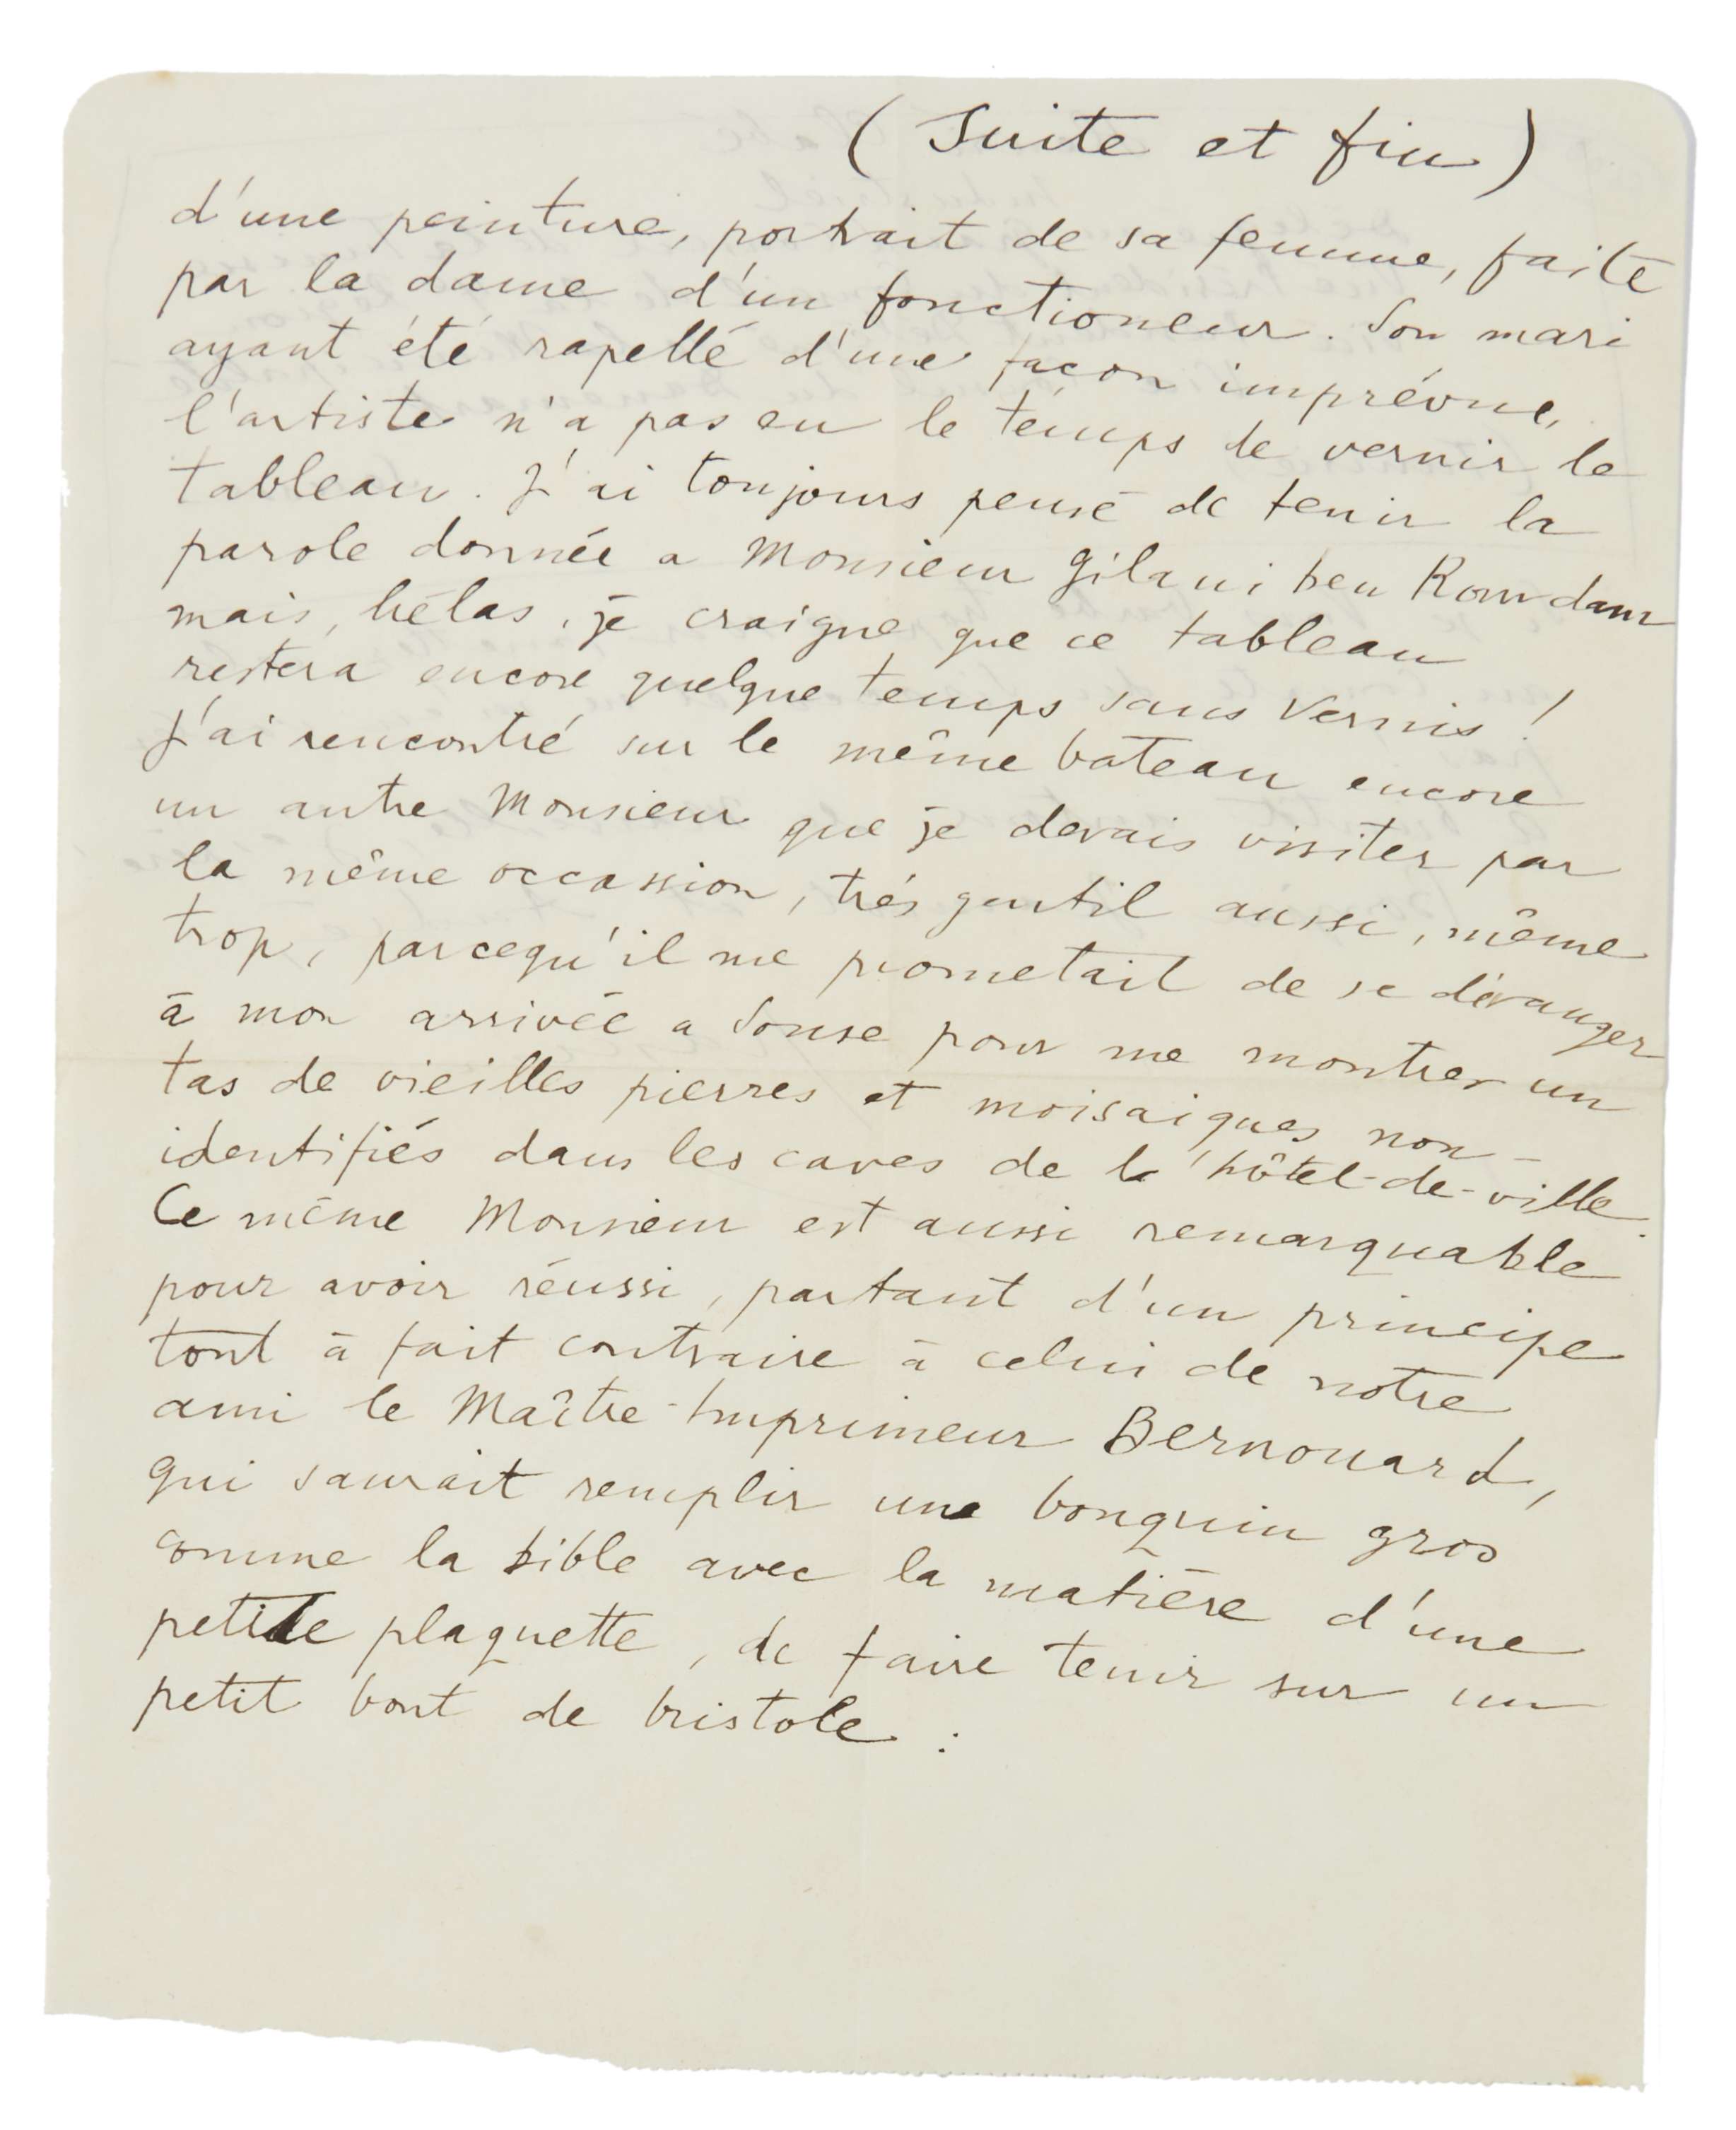 (Suite et fin)
d'une peinture, portrait de sa femme, faite
par la dame d'un fonctioneur. Son mari
ayant été rapellé d'une façon imprévue,
l'artiste n'a pas eu le temps de vernir le
tableau. J'ai toujours pensé de tenir la
parole donnée a Monsieur Gilani ben Romdam
mais, hélas, je craigne que ce tableau
restera encore quelque temps sans vernis !
J'ai rencontré sur le même bateau encore
un autre Monsieur que je devais visiter par
la même occassion, trés gentil aussi, même
trop, parcequ'il me prometait de se déranger
à mon arrivée a Souse pour me montrer un
tas de vieilles pierres et moisaiques non-
identifiés dans les caves de l'hôtel-de-ville.
Ce même Monsieur est aussi remarquable
pour avoir réussi, partant d'un principe
tout à fait contraire à celui de notre
ami le Maître-Imprimeur Bernouard,
qui saurait remplir une bouquin gros
comme la bible avec la matière d'une
petite plaquette, de faire tenir sur un
petit bout de bristole :